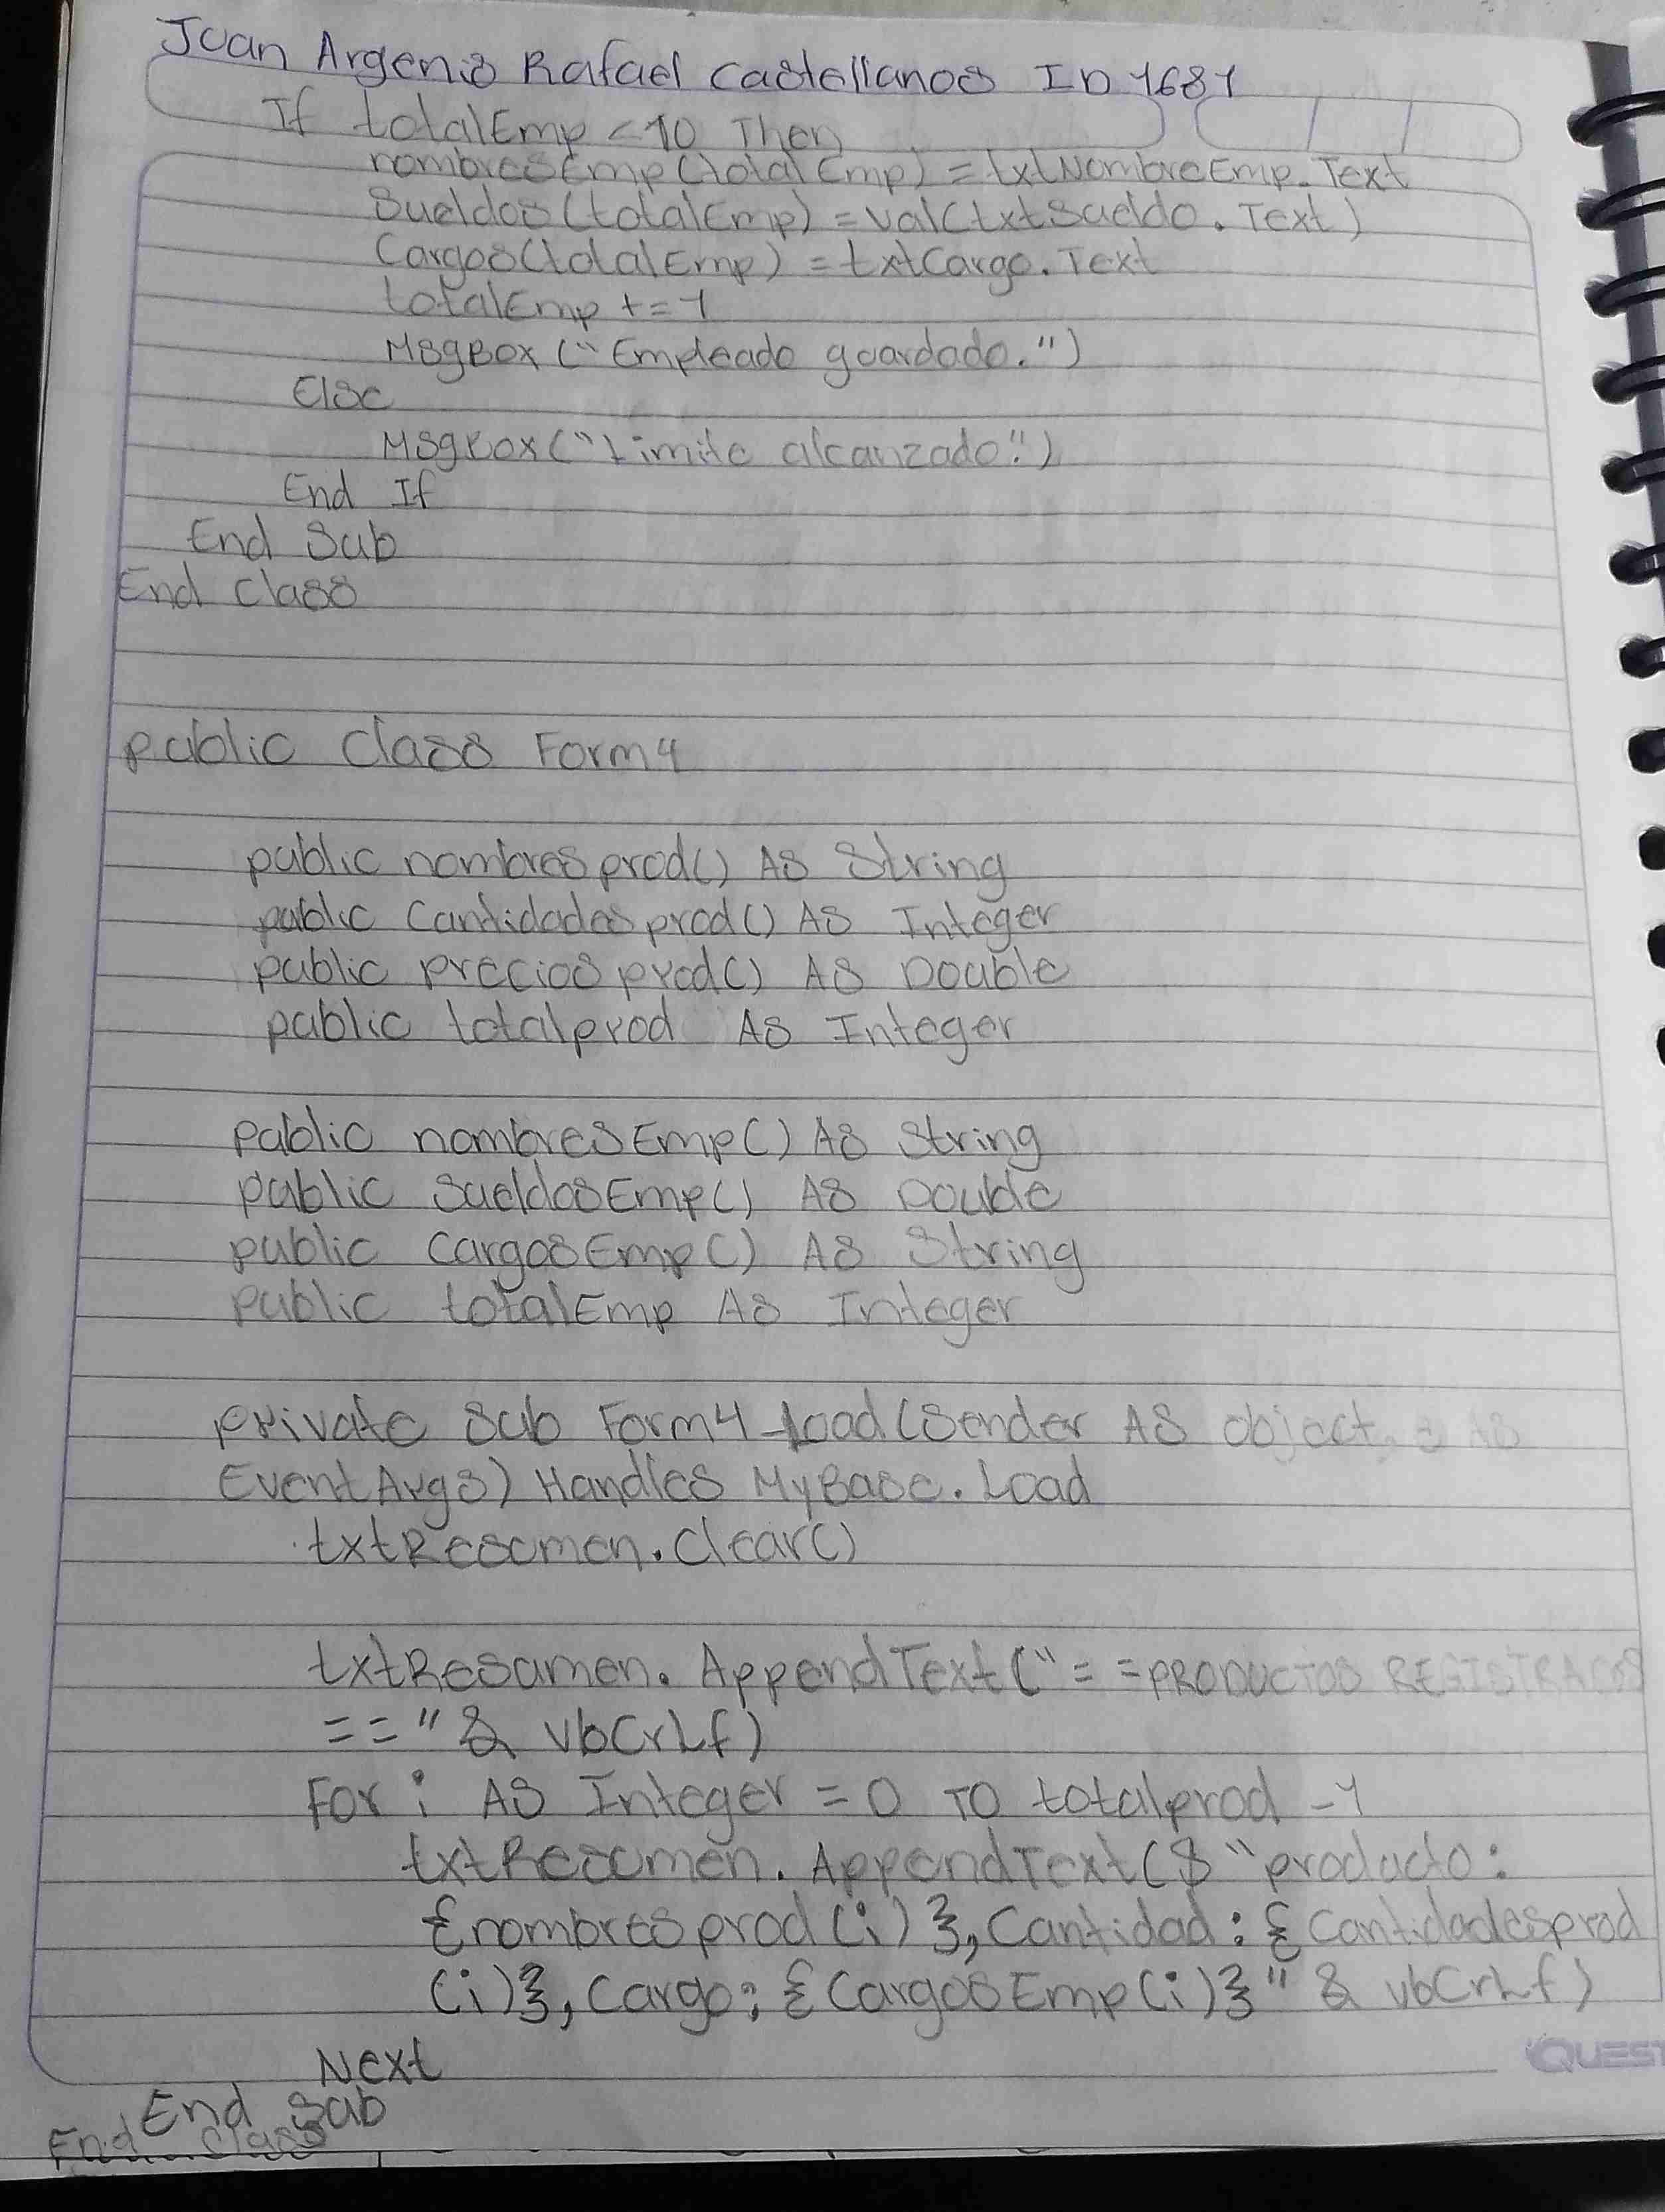 Juan Argenis Rafael Castellanos ID 1681
If totalEmp <10 Then
nombresEmp(totalEmp) = txtNombreEmp.Text
Sueldos(totalEmp) = Val(txtSueldo.Text)
Cargos(totalEmp) = txtCargo.Text
totalEmp += 1
MsgBox ("Empleado guardado.")
Else
MsgBox("Limite alcanzado.")
End If
End Sub
End Class
public Class Form4
public nombresprod() As String
public Cantidadesprod() As Integer
public preciosprod() As Double
public totalprod As Integer
public nombresEmp() As String
public SueldosEmp() As Double
public CargosEmp() As String
public totalEmp As Integer
private Sub Form4_Load(Sender As object, e As
EventArgs) Handles MyBase.Load
txtResumen.Clear()
txtResumen.AppendText("==PRODUCTOS REGISTRADOS
==" & vbCrLf)
For i As Integer = 0 To totalprod -1
txtResumen.AppendText($"producto:
{nombresprod(i)}, Cantidad: {Cantidadesprod
(i)}, Cargo: {CargosEmp(i)}" & vbCrLf)
Next
End Sub
End Class
QUEST